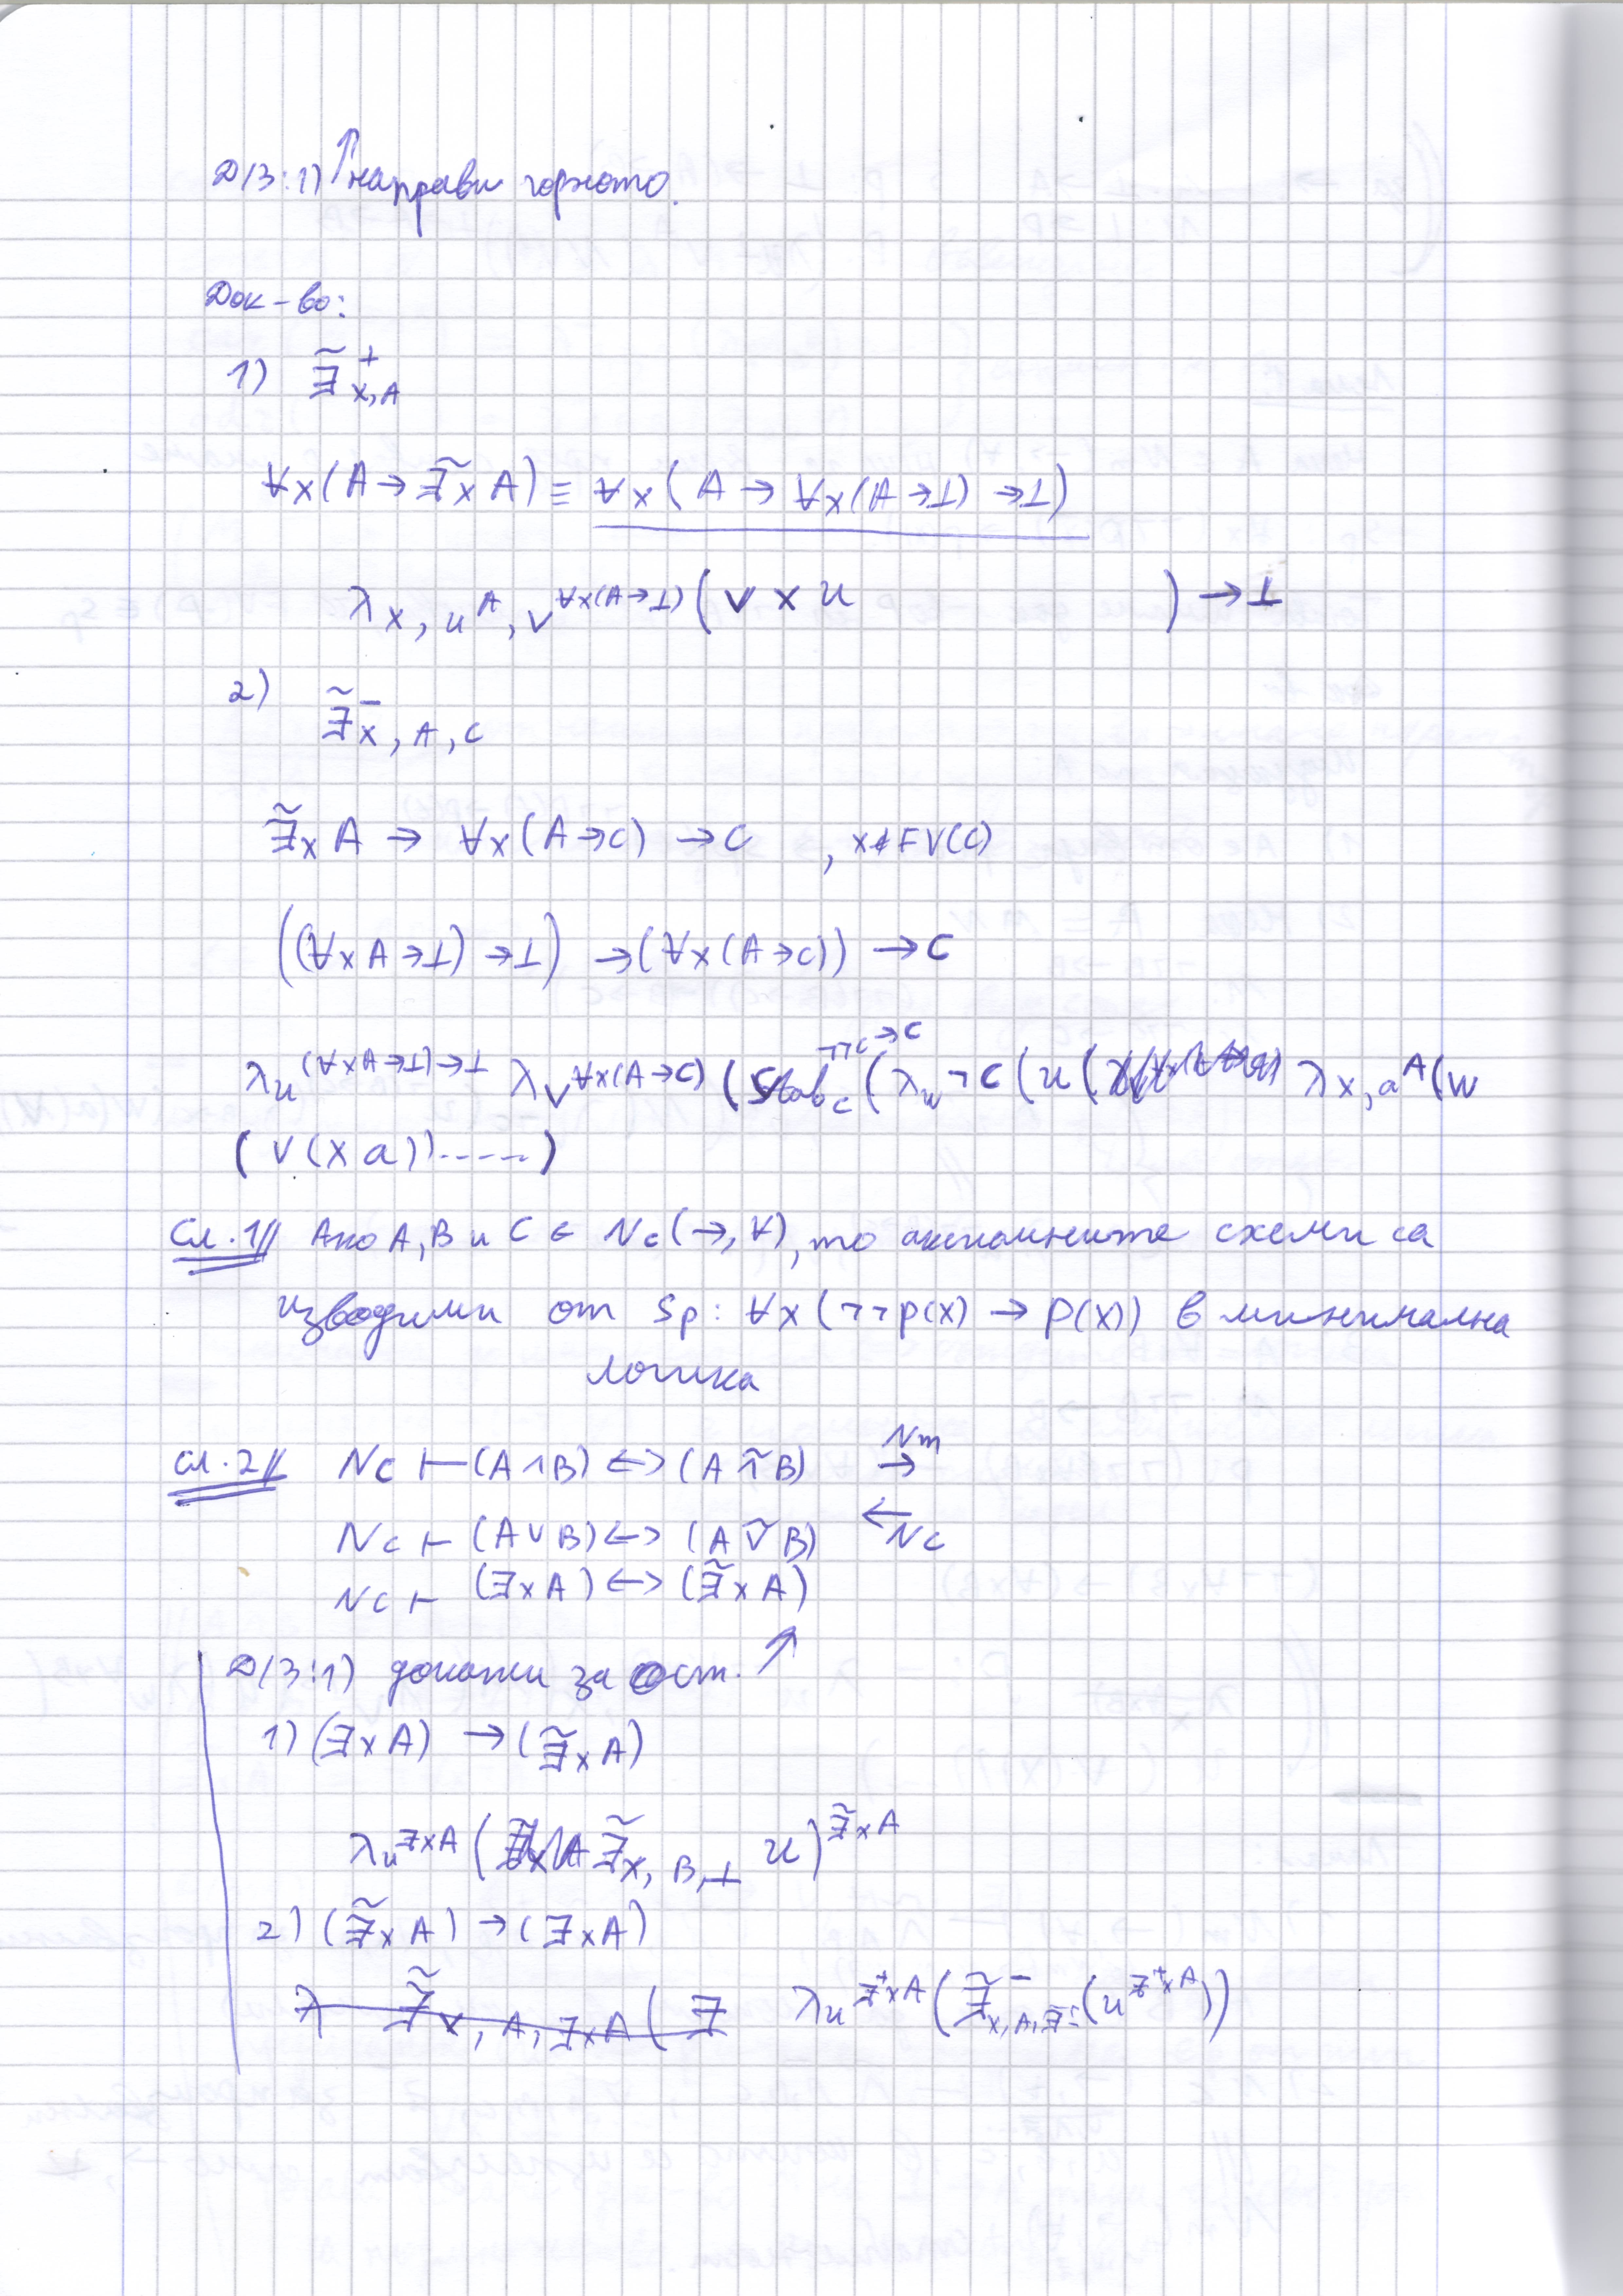 Д/З:1) ↑ направи горното.
Док-во:
1) ∃̃⁺ₓ,A
∀x(A→∃̃xA) ≡ ∀x(A → ∀x(A→⊥) →⊥)
λx, u^A, v^∀x(A→⊥) ( v x u ) →⊥
2) ∃̃⁻x, A, C
∃̃xA → ∀x(A→C) →C , x∉FV(C)
((∀xA→⊥)→⊥) →(∀x(A→C)) →C
λu^(∀xA→⊥)→⊥ λv^∀x(A→C) (Stab_C^¬¬C→C (λw^¬C (u ( λx, a^A (w
( v(x a))-----)
Сл.1// Ако A,B и C ∈ Nc(→,∀), то аксиомните схеми са
изводими от Sp: ∀x(¬¬p(x) → p(x)) в минимална
логика
Сл.2// Nc ⊢ (A∧B) ↔ (A ∧̃ B) →Nm
Nc ⊢ (A∨B) ↔ (A ∨̃ B) ←Nc
Nc ⊢ (∃xA) ↔ (∃̃xA)
Д/З:1) докажи за ост. ↗
1) (∃xA) → (∃̃xA)
λu^∃xA ( ∃̃x, B,⊥ u)^∃̃xA
2) (∃̃xA) → (∃xA)
λ ∃̃x, A, ∃xA ( ∃ λu^∃⁺xA (∃̃⁻x,A,∃⁻ (u^∃⁺xA))